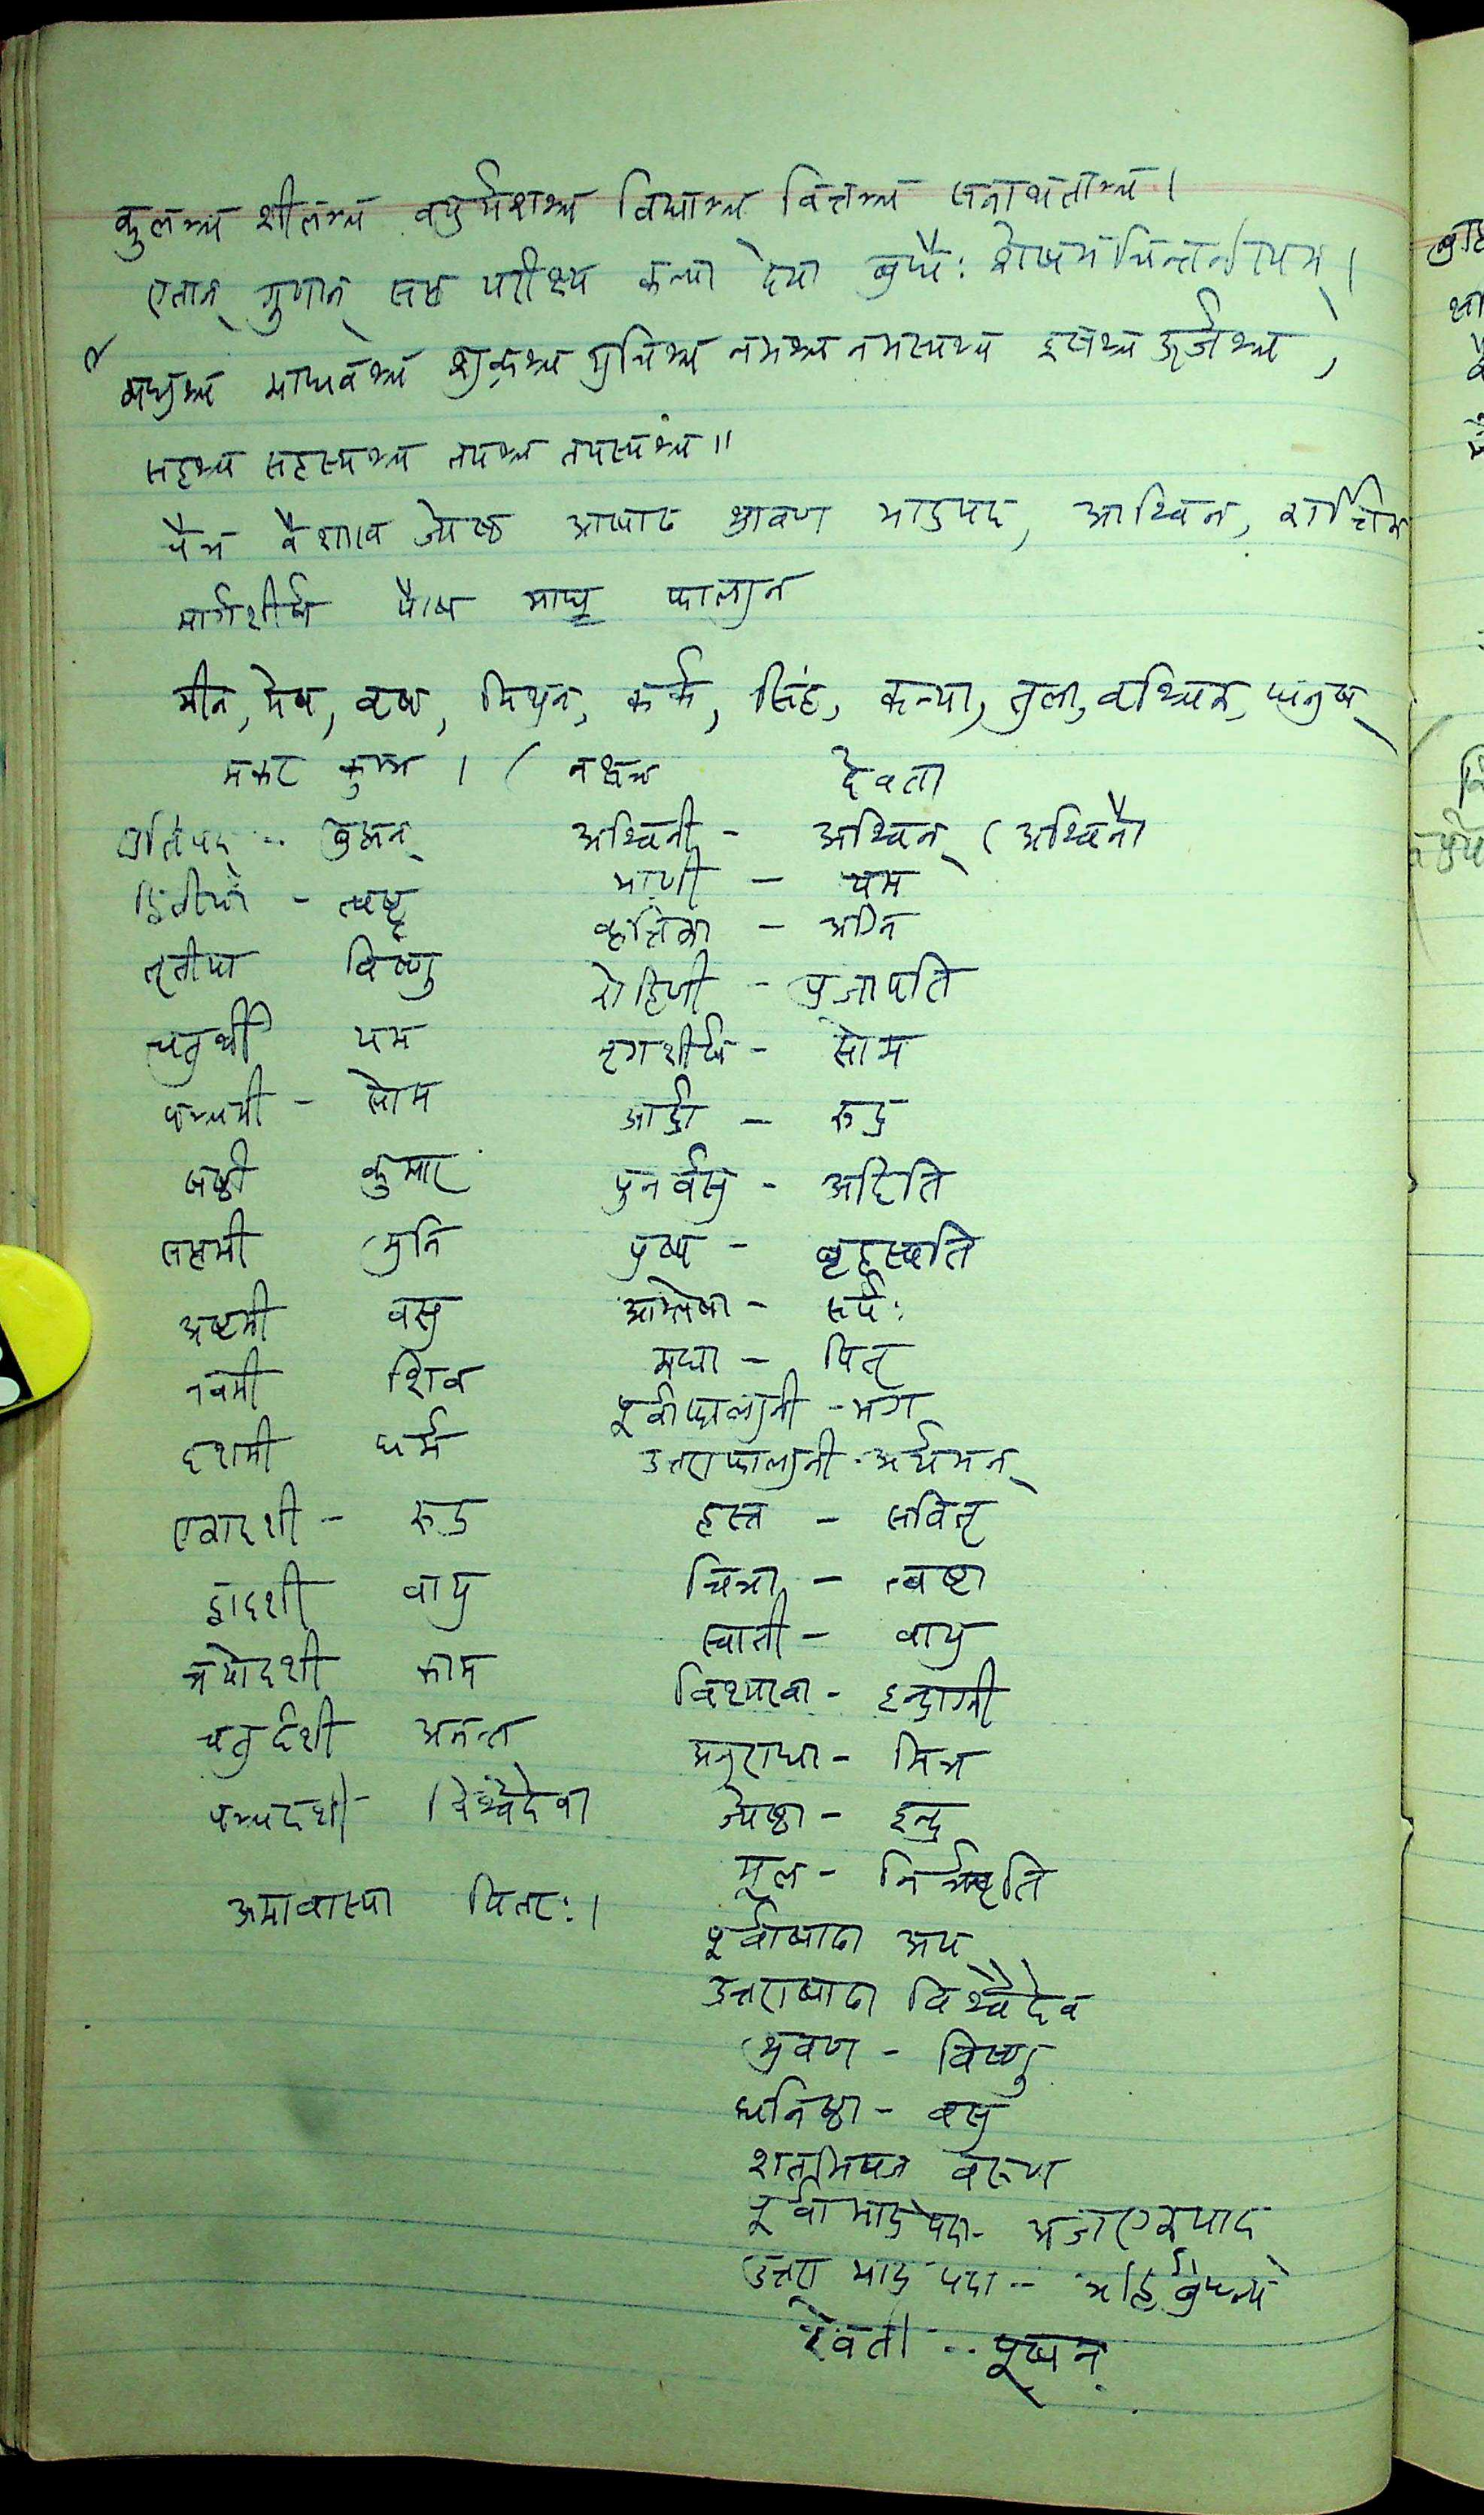 कुलञ्च शीलञ्च वपुर्यशश्च विद्याञ्च वित्तञ्च सनाथताञ्च ।
एतान् गुणान् सप्त परीक्ष्य कन्या देया बुधैः शेषमचिन्तनीयम् ।
मधुश्च माधवश्च शुक्रश्च शुचिश्च नभश्च नभस्यश्च इषश्च ऊर्जश्च,
सहश्च सहस्यश्च तपश्च तपस्यश्च ॥
चैत्र वैशाख ज्येष्ठ आषाढ श्रावण भाद्रपद, आश्विन,
मार्गशीर्ष पौष माघ फाल्गुन
मीन, मेष, वृष, मिथुन, कर्क, सिंह, कन्या, तुला, वृश्चिक, धनुष्
मकर कुम्भ । ( नक्षत्र देवता
प्रतिपद् -- ब्रह्मन् अश्विनी - अश्विन् ( अश्विनौ
द्वितीया - त्वष्टृ भरणी - यम
तृतीया विष्णु कृत्तिका - अग्नि
चतुर्थी यम रोहिणी - प्रजापति
पञ्चमी - सोम मृगशीर्ष - सोम
षष्ठी कुमार आर्द्रा - रुद्र
सप्तमी मुनि पुनर्वसु - अदिति
अष्टमी वसु पुष्य - बृहस्पति
नवमी शिव आश्लेषा - सर्पः
दशमी धर्म मघा - पितृ
एकादशी - रुद्र पूर्वाफाल्गुनी - भग
द्वादशी वायु उत्तराफाल्गुनी - अर्यमन्
त्रयोदशी काम हस्त - सवितृ
चतुर्दशी अनन्त चित्रा - त्वष्टा
पञ्चदशी विश्वेदेवा स्वाती - वायु
अमावास्या पितरः । विशाखा - इन्द्राग्नी
अनुराधा - मित्र
ज्येष्ठा - इन्द्र
मूल - निर्ऋति
पूर्वाषाढा अप्
उत्तराषाढा विश्वेदेव
श्रवण - विष्णु
धनिष्ठा - वसु
शतभिषज वरुण
पूर्वाभाद्रपदा - अजएकपाद
उत्तराभाद्रपदा -- अहिर्बुध्न्य
रेवती -- पूषन्